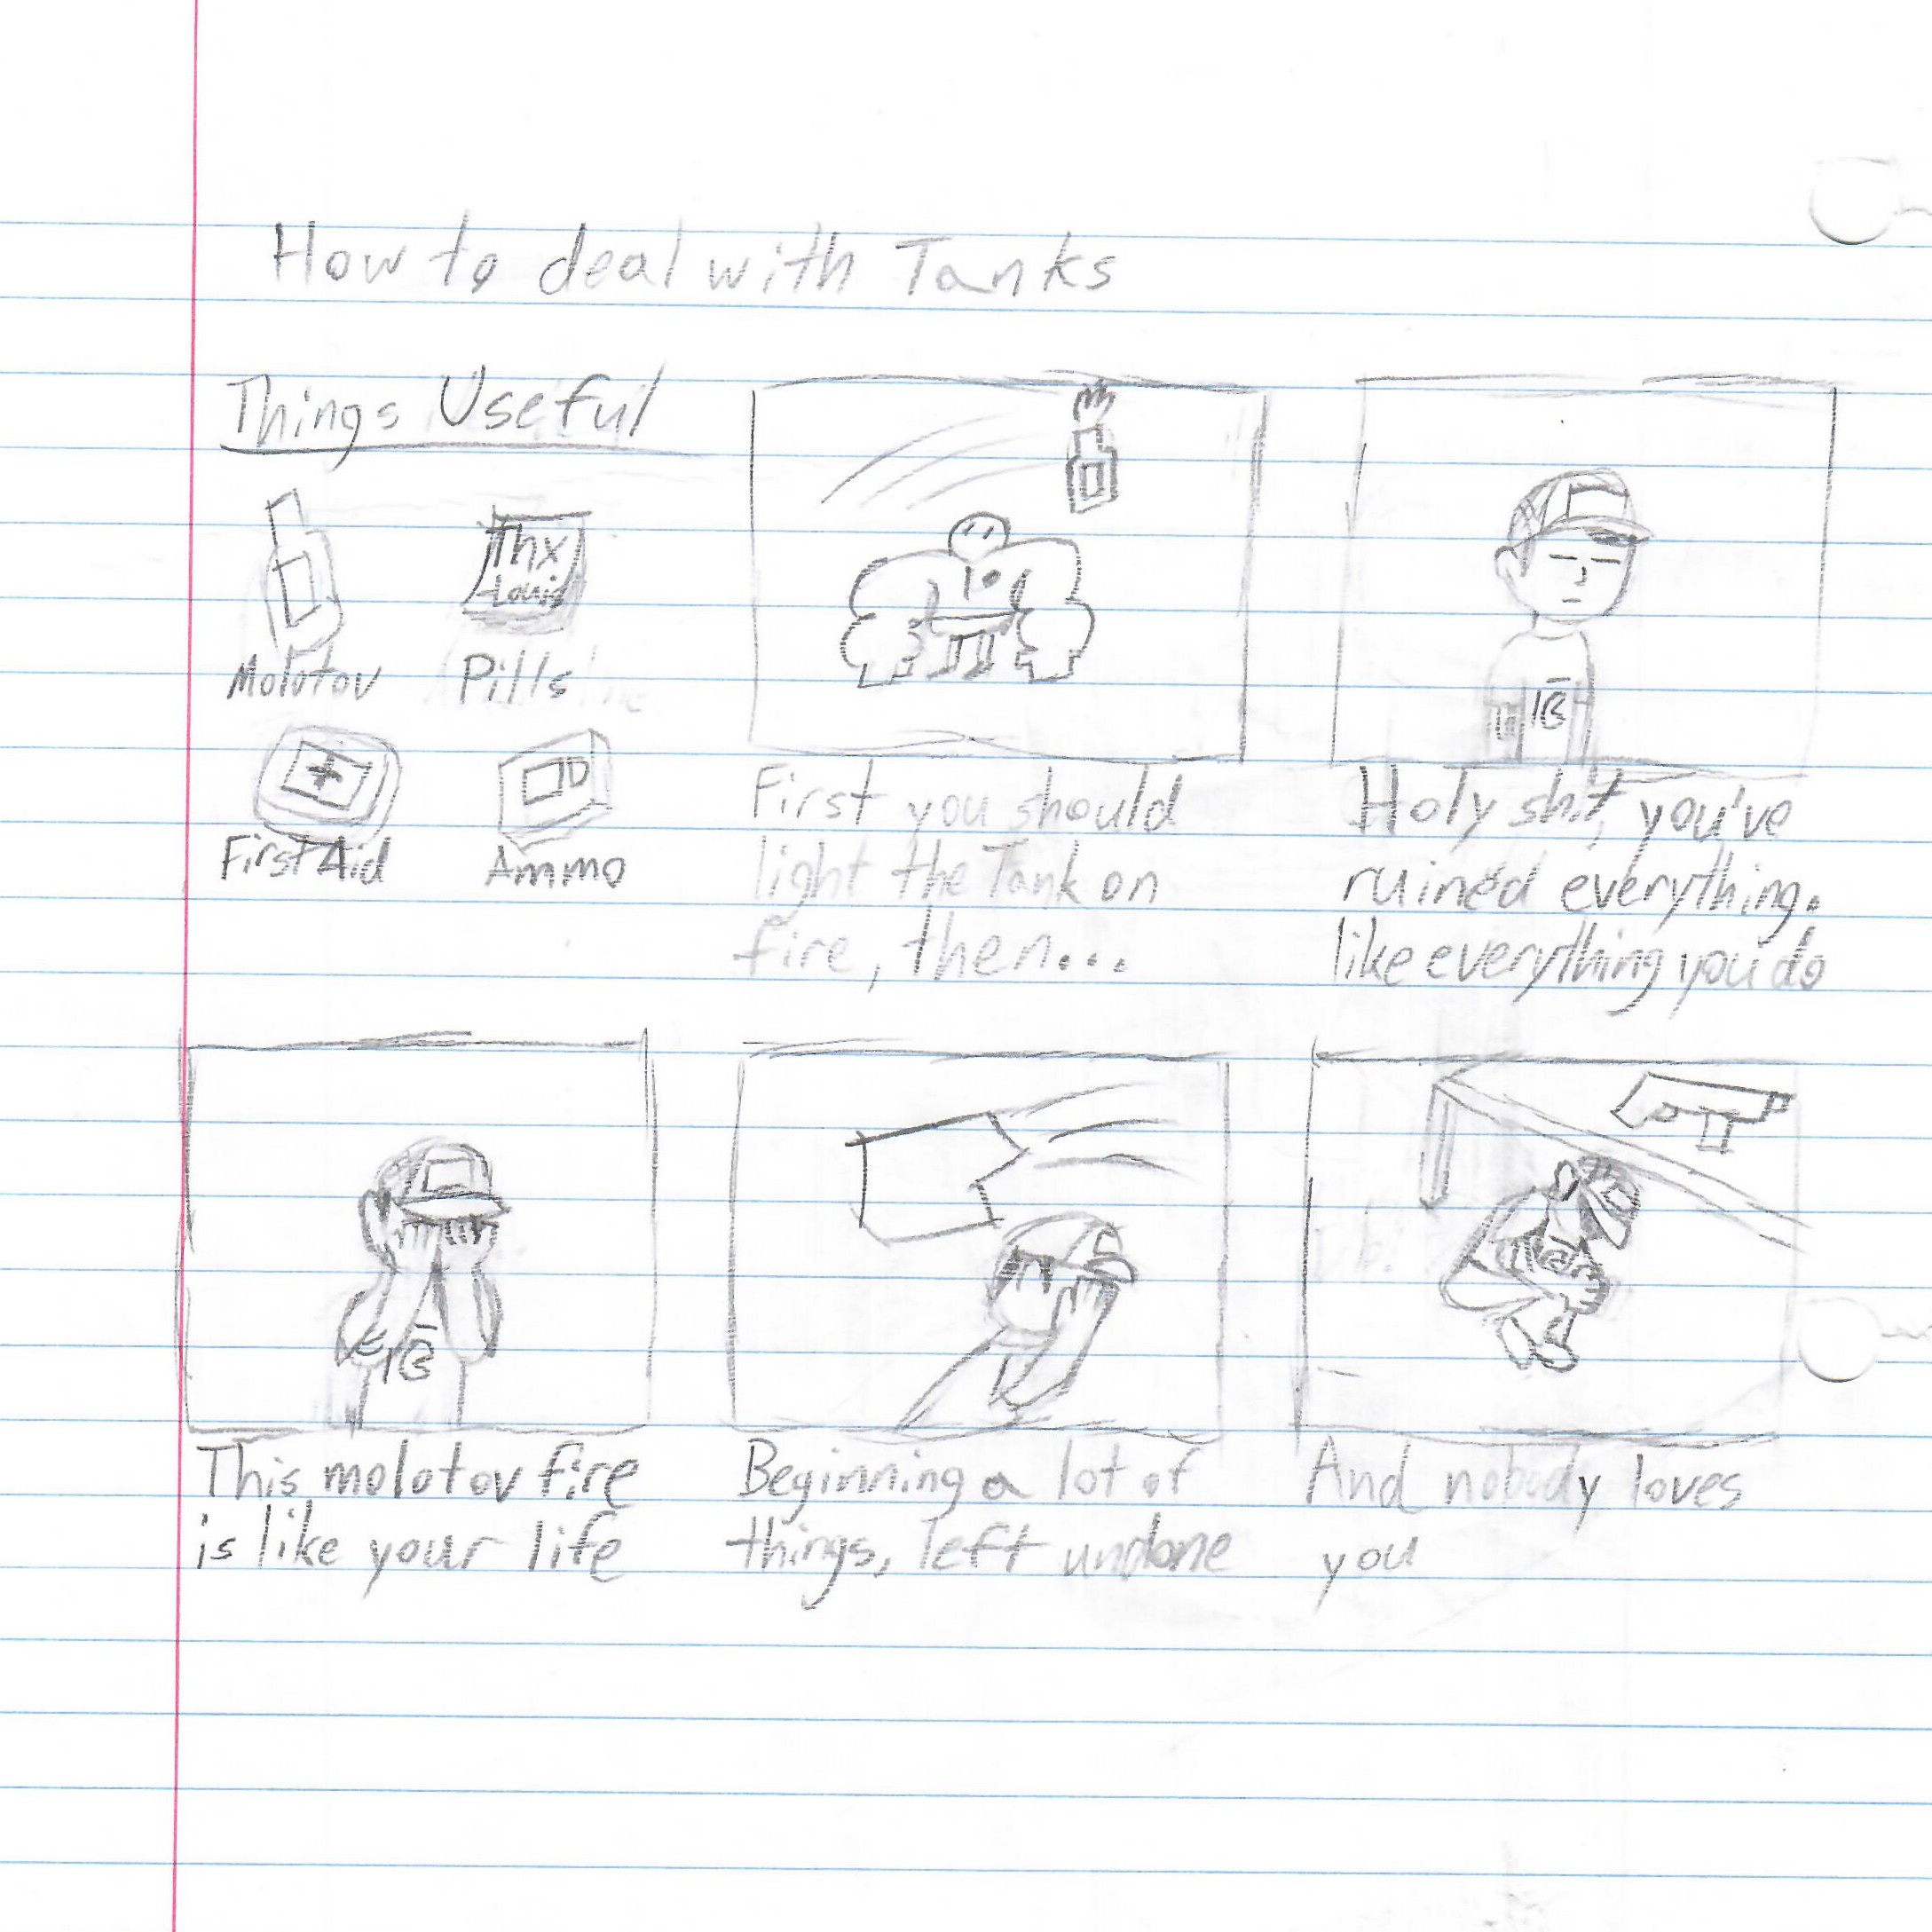 How to deal with Tanks
Things Useful
Thx
Louis
Molotov
Pills
First Aid
Ammo
First you should
light the Tank on
fire, then...
Holy shit, you've
ruined everything.
like everything you do
This molotov fire
is like your life
Beginning a lot of
things, left undone
And nobody loves
you